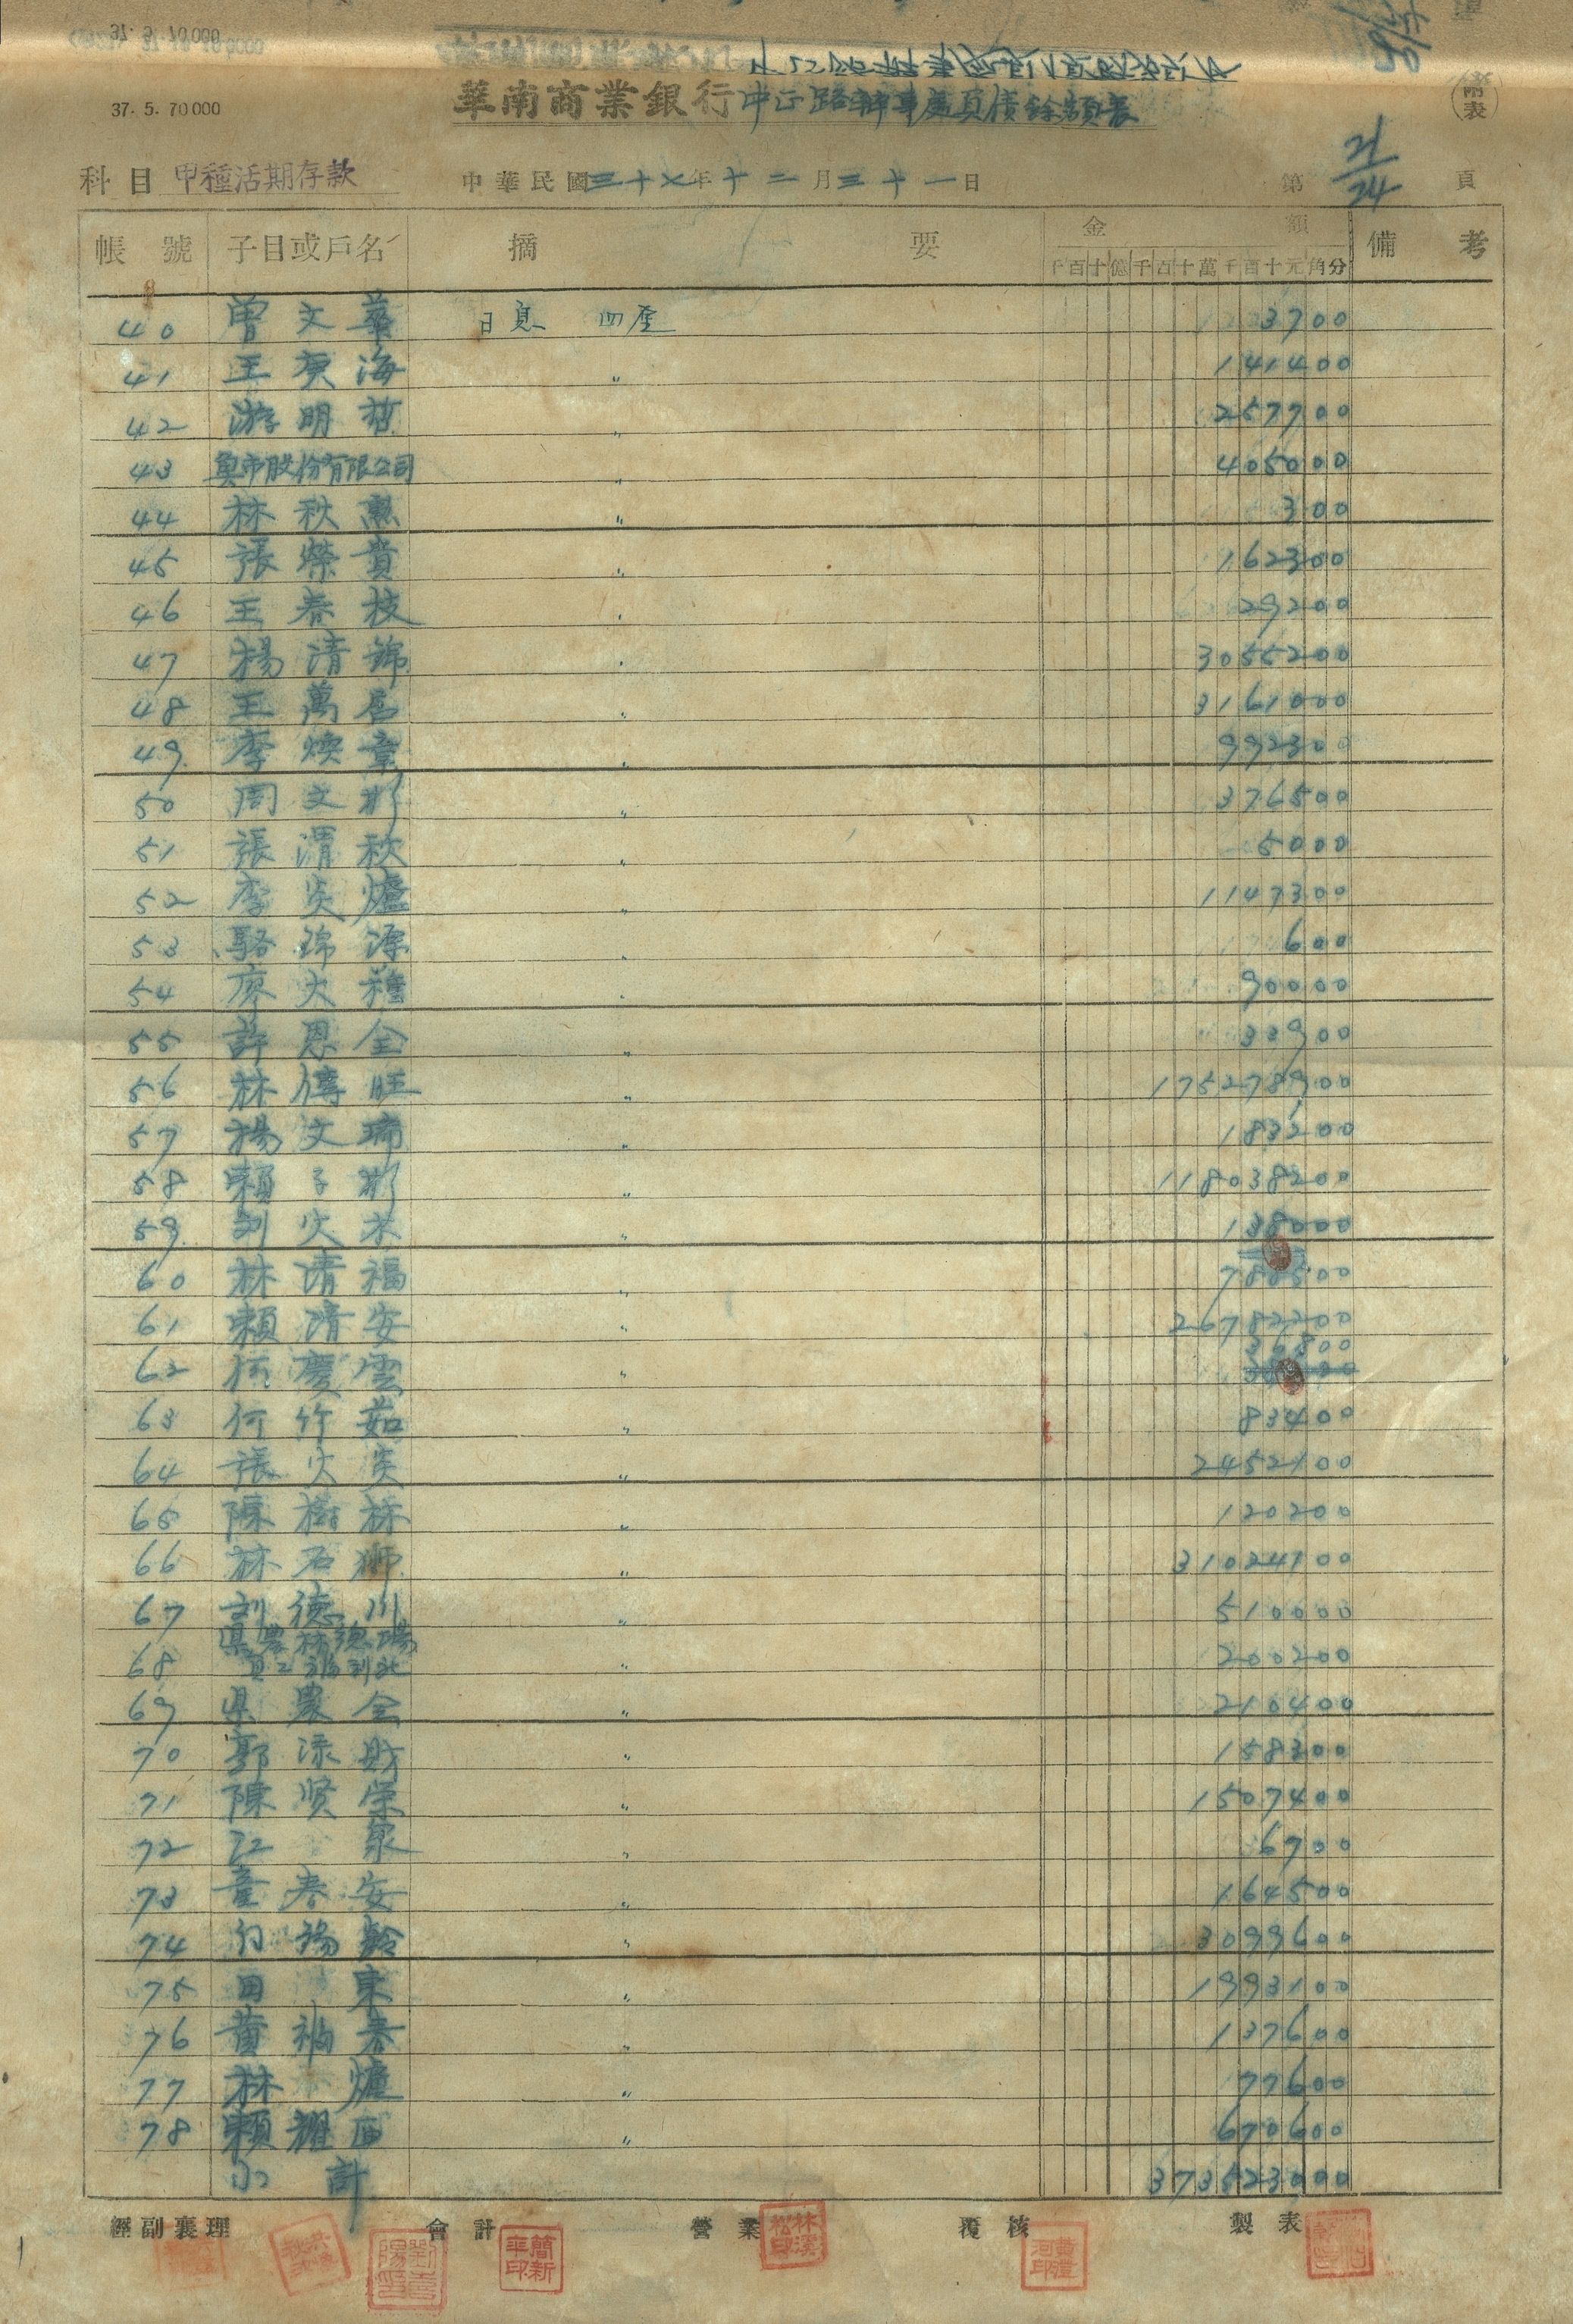 37. 5. 70000
華南商業銀行中正路辦事處負債餘額表
附表
科目 甲種活期存款 中華民國三十七年十二月三十一日 第 21/24 頁
帳號 子目或戶名 摘要 金額 備考
千百十億千百十萬千百十元角分
40 曾文華 日息 四厘 3700
41 王庚海 〃 141400
42 游明哲 〃 257700
43 魚市股份有限公司 〃 405000
44 林秋 〃 300
45 張榮貴 〃 162300
46 王春枝 〃 29200
47 楊清錦 〃 3055200
48 王萬居 〃 3161000
49 李煥章 〃 992300
50 周文彬 〃 376500
51 張渭秋 〃 5000
52 李炎爐 〃 1147300
53 駱錦源 〃 600
54 廖大 〃 90000
55 許恩全 〃 33900
56 林傳旺 〃 175278900
57 楊文瑞 〃 183200
58 賴子彬 〃 118038200
59 刘火木 〃 138000
60 林清福 〃 788500
61 賴清安 〃 26782200
62 慶雲 〃 36800
63 何竹茹 〃 83400
64 張火炎 〃 2452100
65 陳樹林 〃 120200
66 林石獅 〃 31024100
67 刘德川 〃 510000
68 縣農林總場 200200
69 県農会 〃 210400
70 郭添財 〃 158300
71 陳贤榮 〃 1507400
72 江泉 〃 6700
73 童春安 〃 164500
74 錫齡 〃 3099600
75 田東 〃 1993100
76 黄春 〃 137600
77 林爐 〃 77600
78 賴耀西 〃 670600
小計 373523000
經副襄理 會計 營業 覆核 製表
簡新
林溪松印